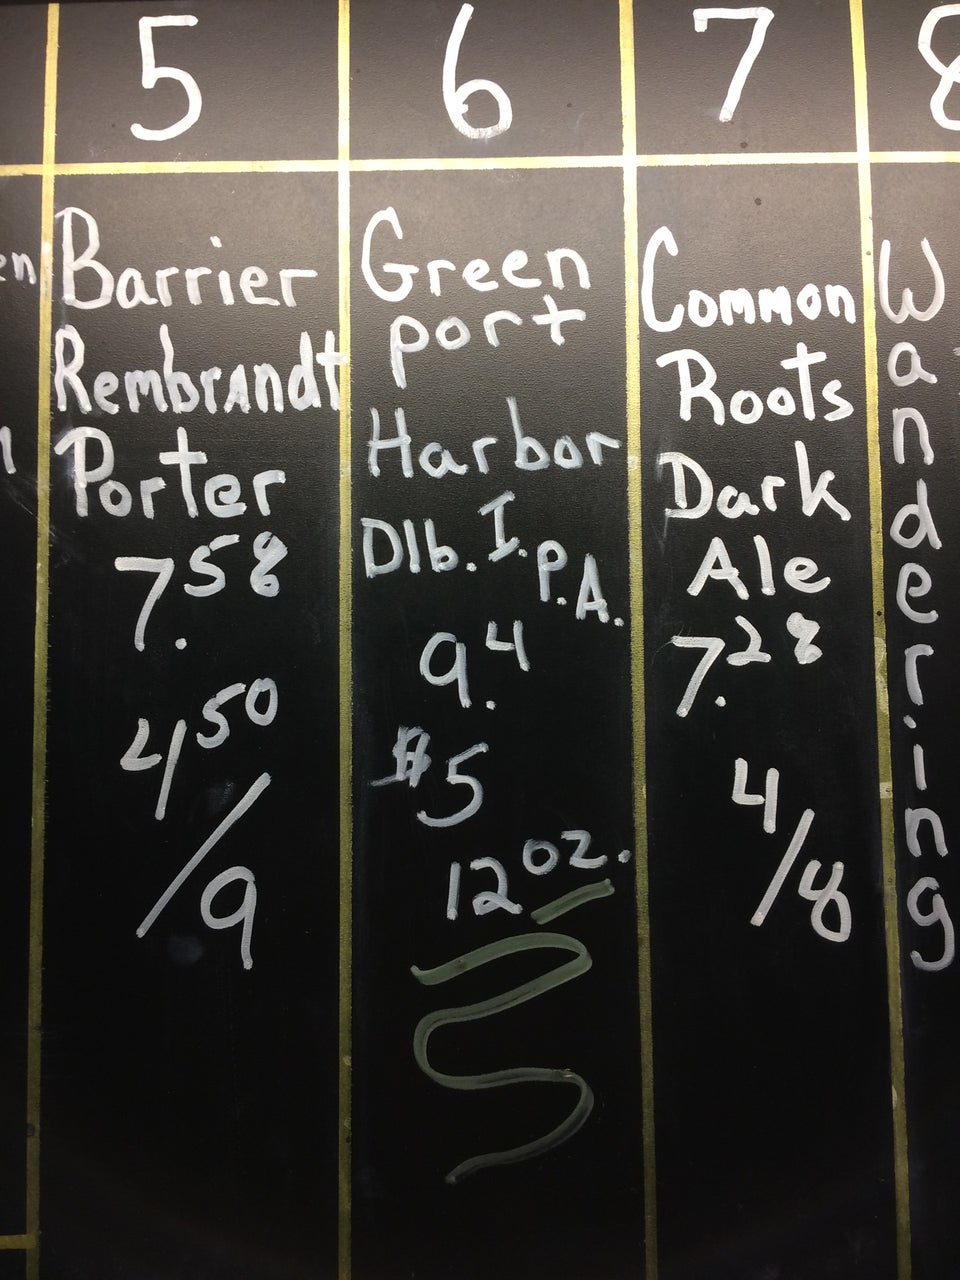 5
Barrier
Rembrandt
Porter
7.58
4.50
/9
6
Green
port
Harbor
Dlb. I.P.A.
9.4
$5
12 oz.
7
Common
Roots
Dark
Ale
7.28
4/8
8
Wandering